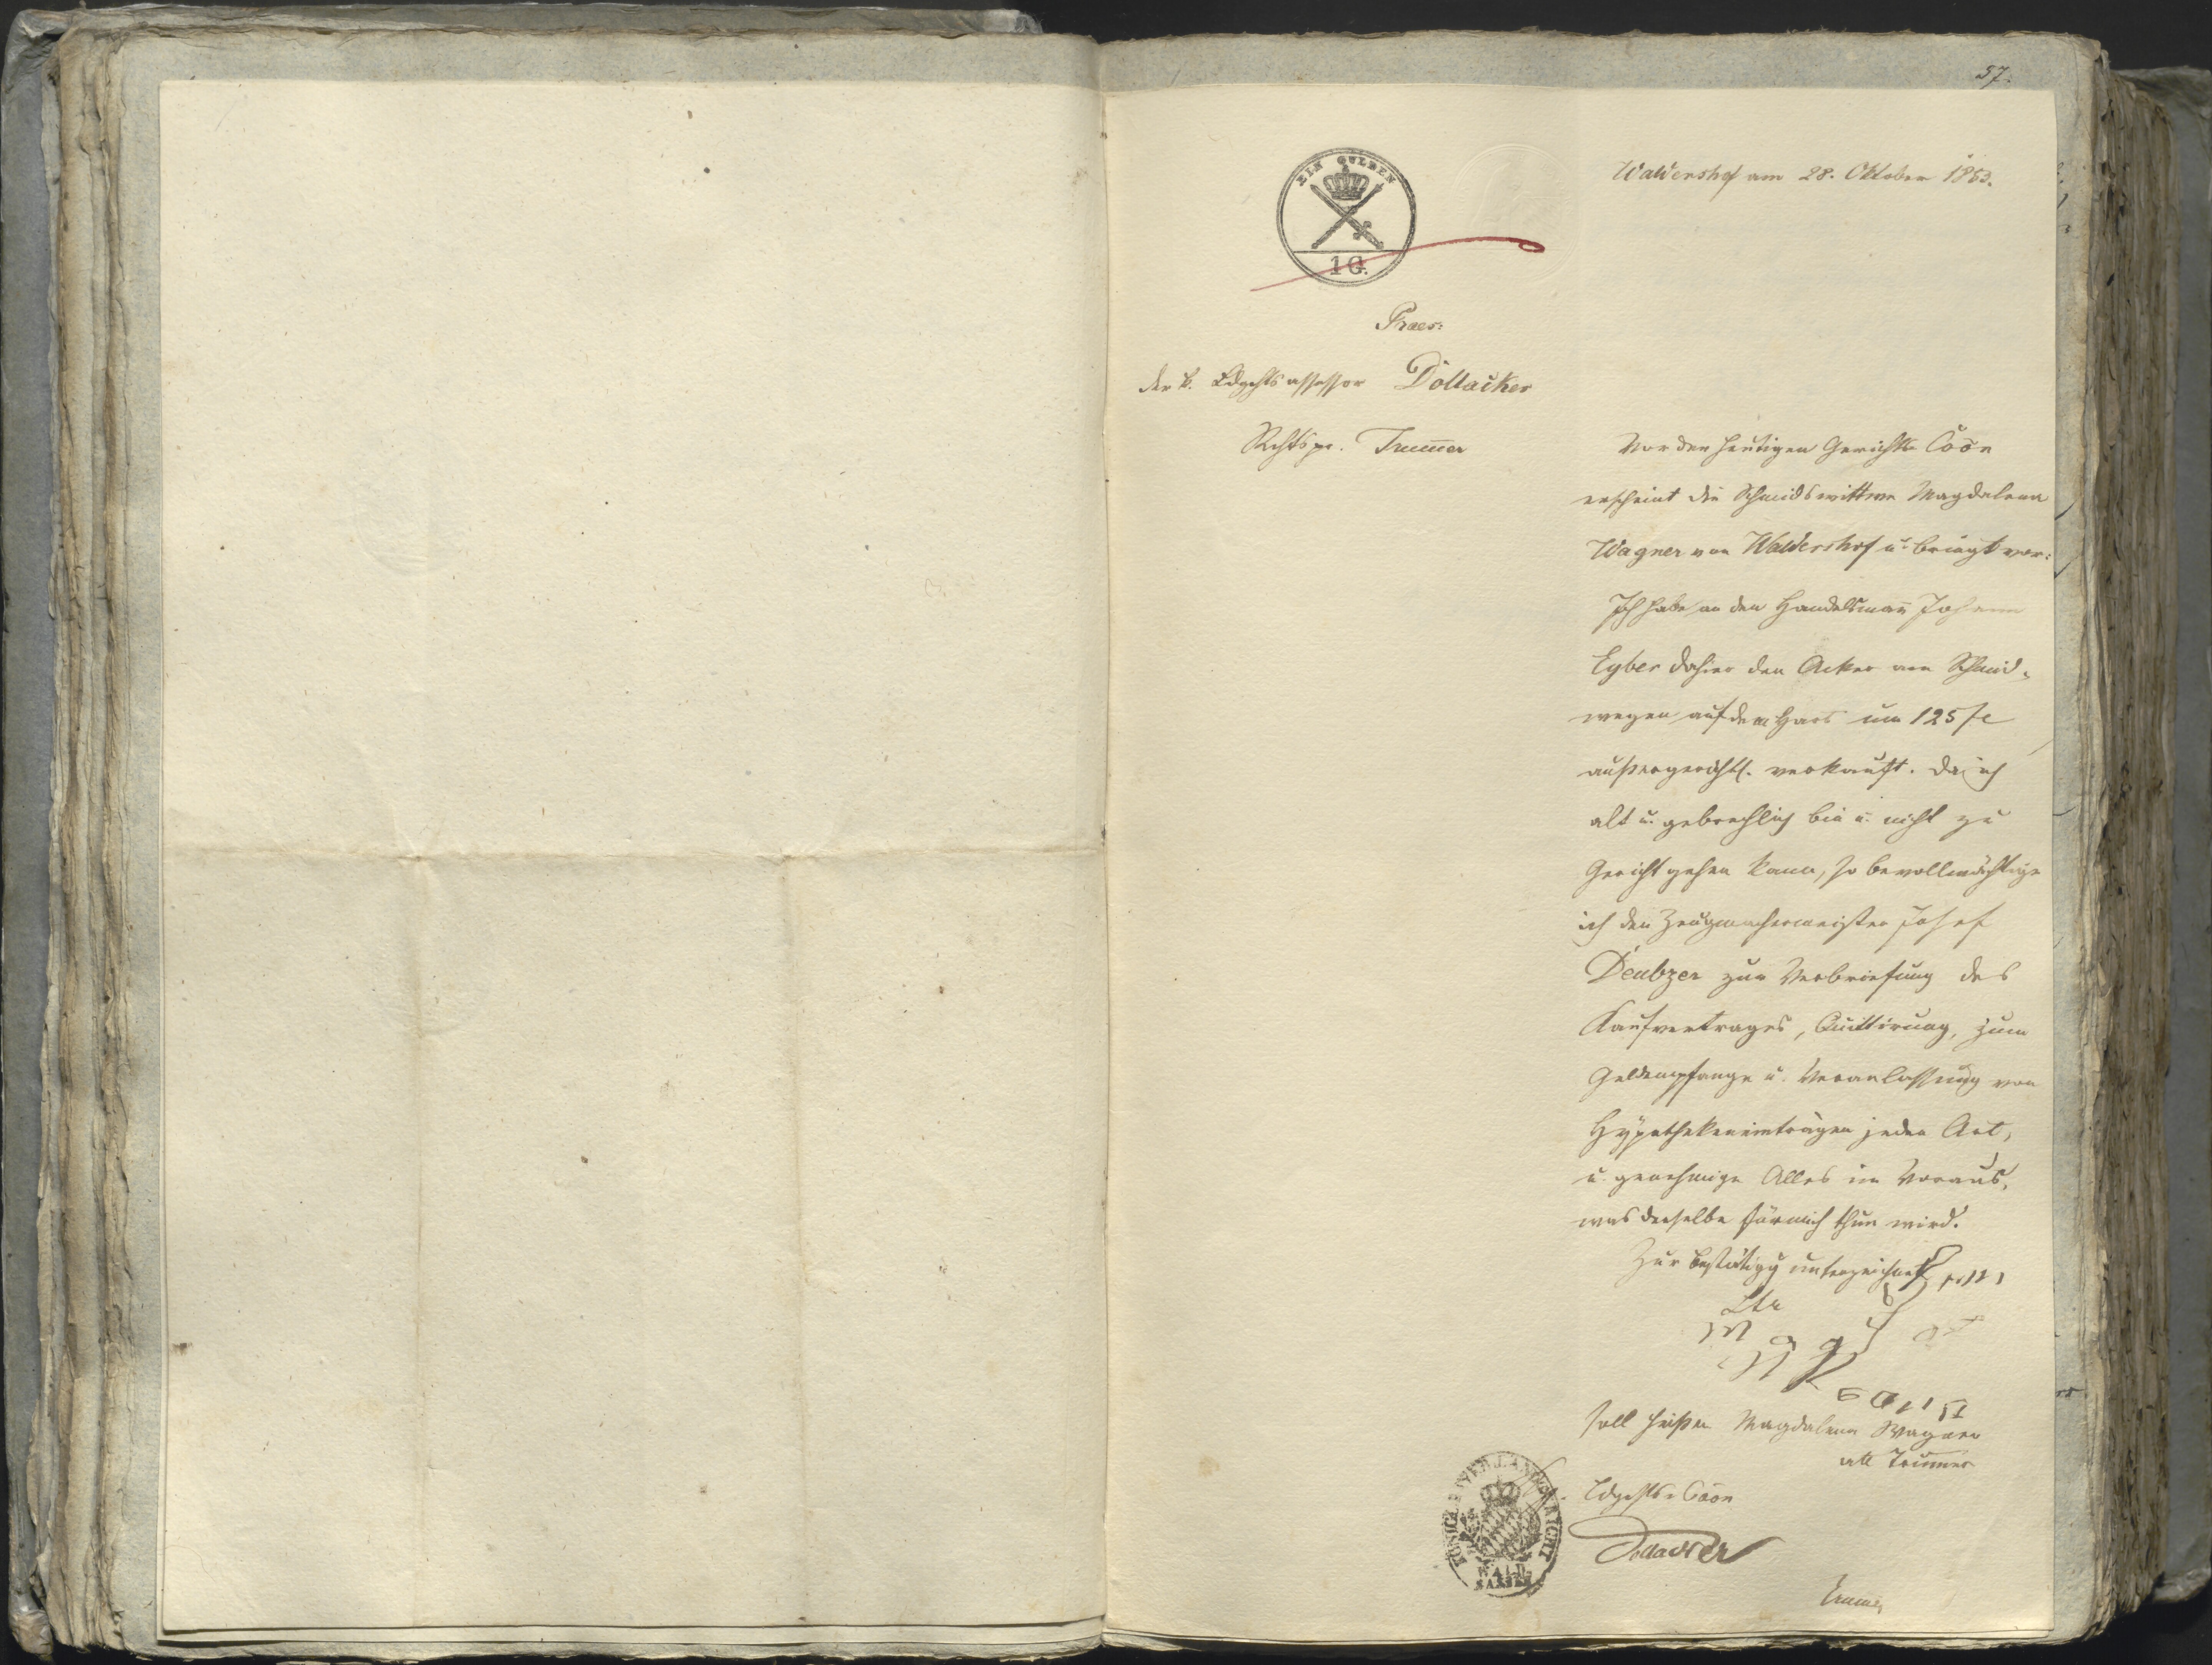 57.
EIN GULDEN
1 G.
Waldershof am 28. Oktober 1853.
Praes:
der k. Ldgchts assessor Dollacker
Rchtspr. Trum̅er
Vor der heutigen Gerichts-Coõn
erscheint die Schmidswittwe Magdalena
Wagner von Waldershof u. bringt vor:
Ich habe an den Handelsman̅ Johann
Eyber dahier den Acker am Schmid-
wegen auf dem Hard um 125 fl
außergerichtl. verkauft. Da ich
alt u. gebrechlich bin u. nicht zu
Gericht gehen kann, so bevollmächtige
ich den Zeugmachermeister Josef
Deubzer zur Verbriefung des
Kaufvertrages, Quittirung, zum
Geldempfange u. Veranlassung von
Hypothekeneinträgen jeder Art,
u. genehmige Alles im Voraus,
was derselbe für mich thun wird.
Zur Bestätigg unterzeichnet
soll heißen Magdalena Wagner
att Trum̅er
Ldgchts-Coõn
Dollacker
Trumer
KÖNIGL. BAYER. LANDGERICHT
WALD-
SASSEN